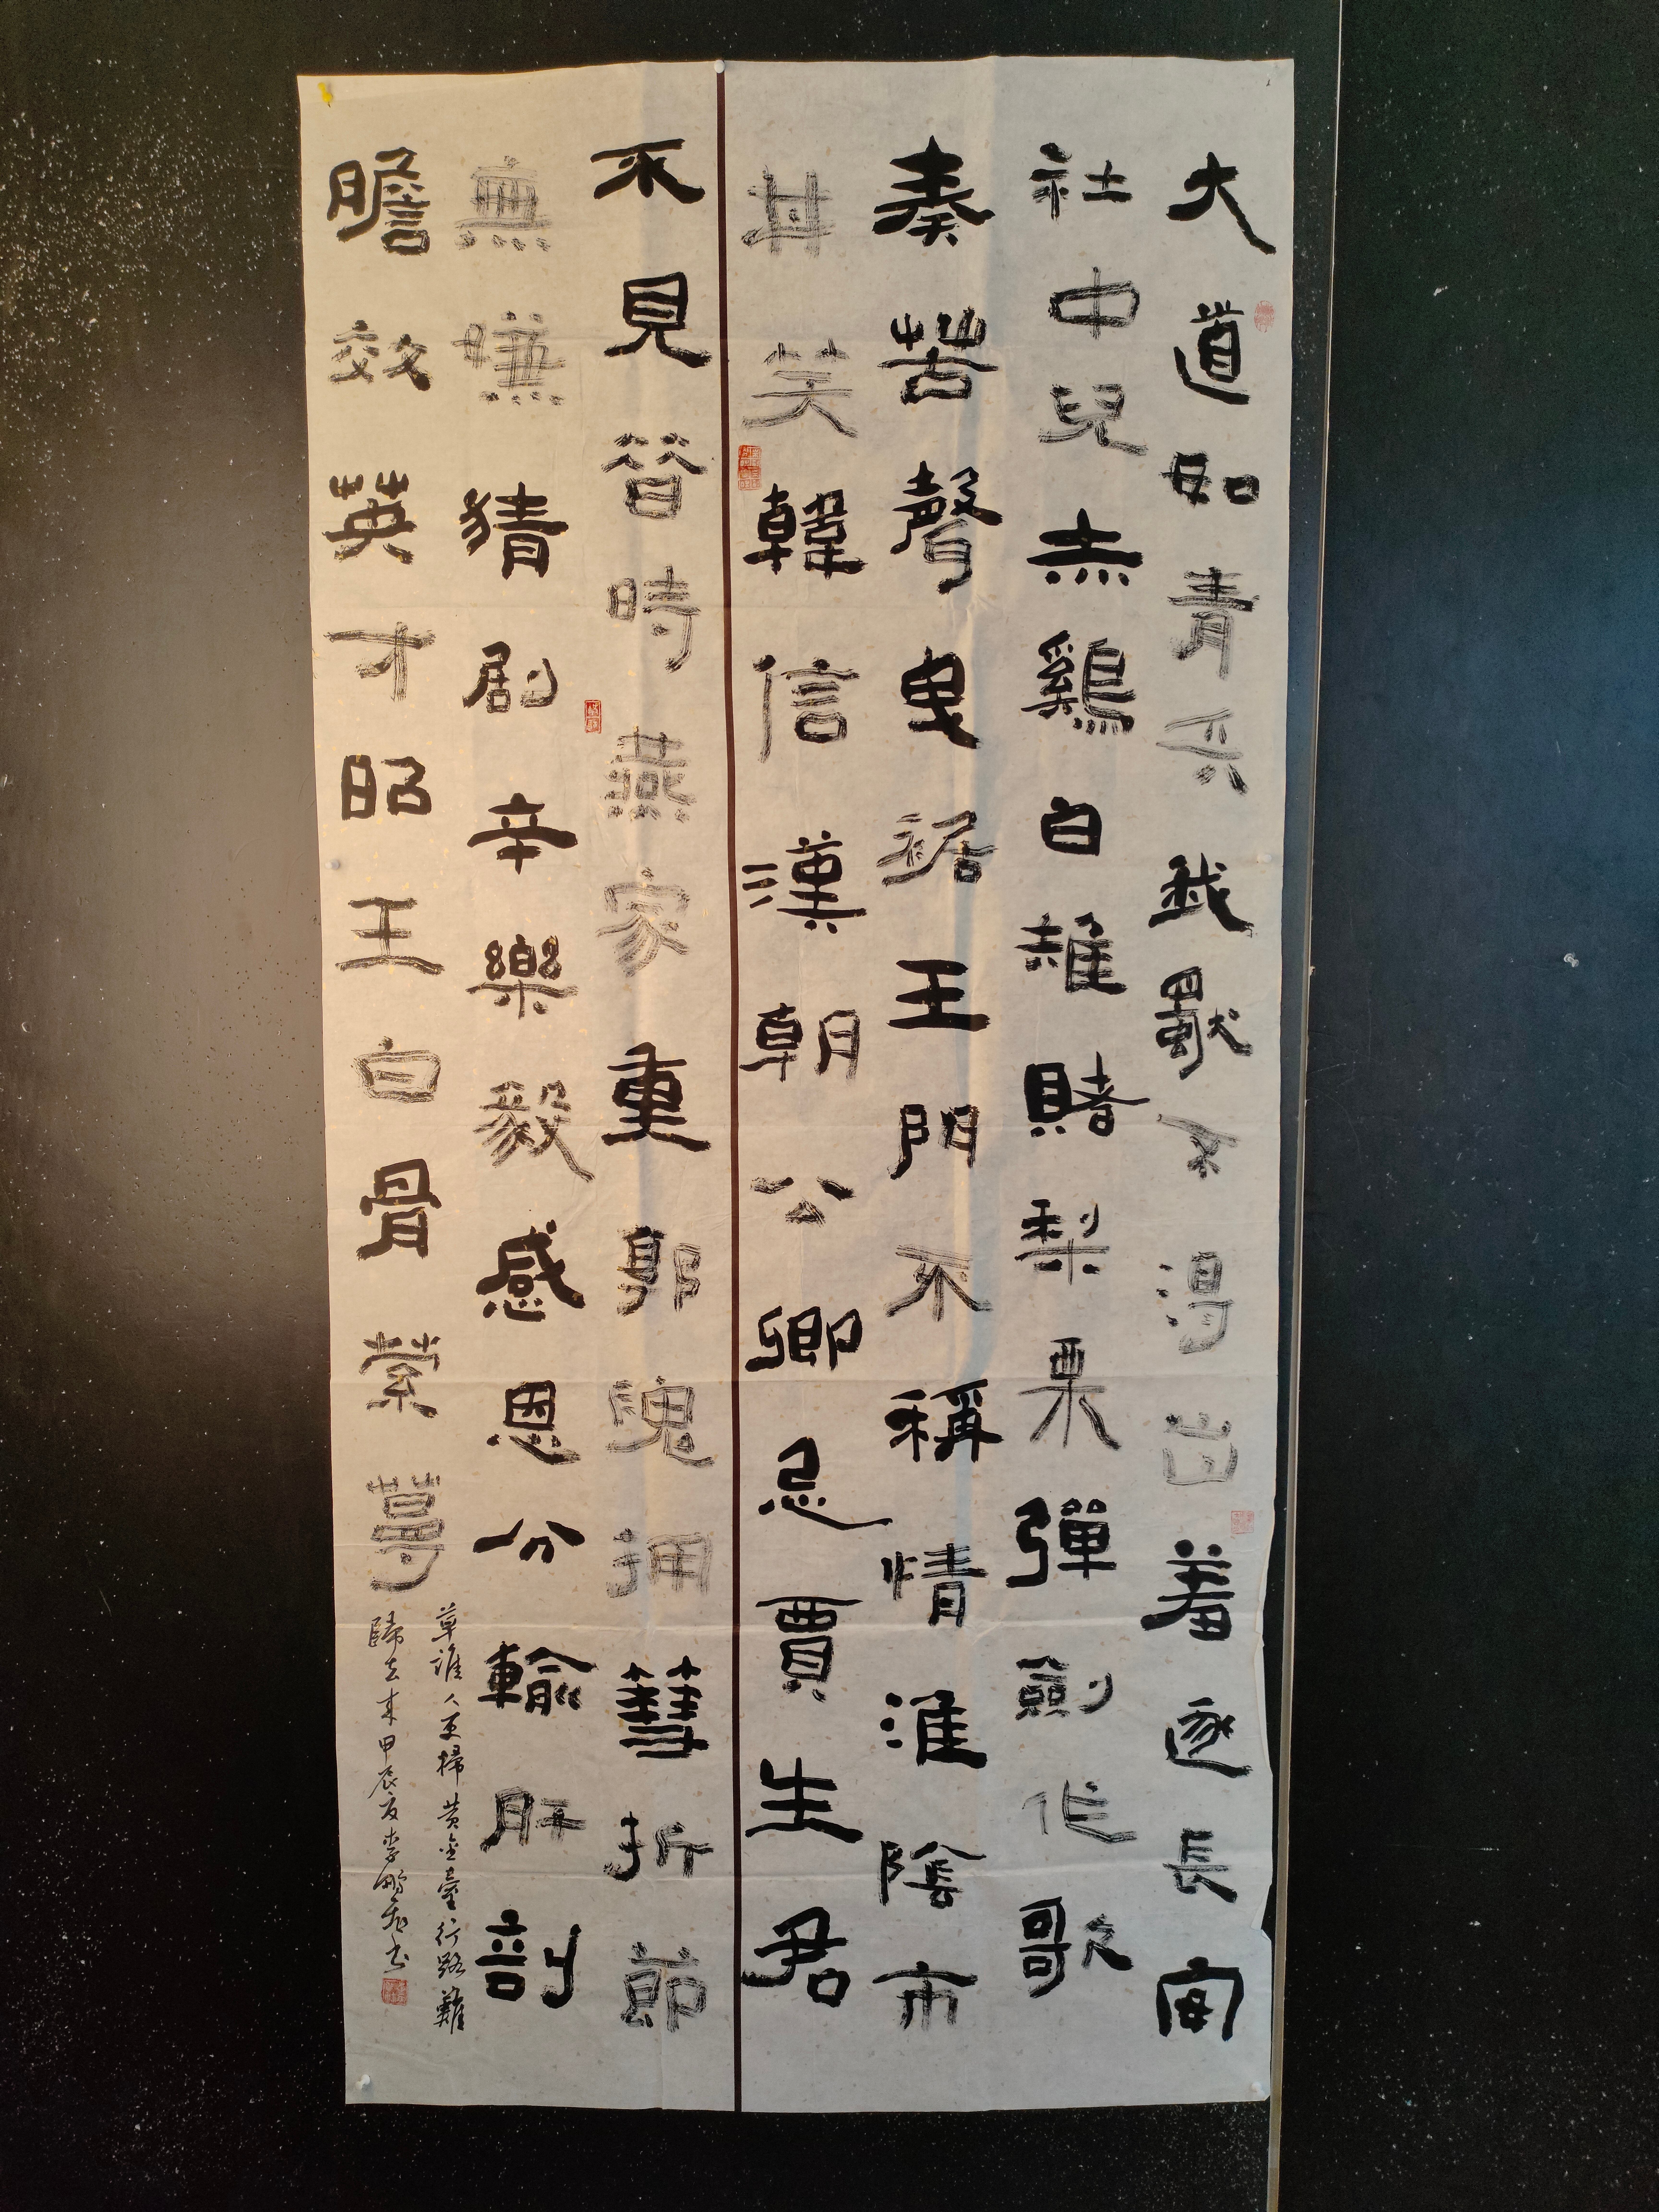 大道如青天我獨不得出羞逐長安
社中兒赤雞白雉賭梨栗彈劍作歌
奏苦聲曳裾王門不稱情淮陰市
井笑韓信漢朝公卿忌賈生君
不見昔時燕家重郭隗拥篲折節
無嫌猜劇辛樂毅感恩分輸肝剖
膽效英才昭王白骨縈蔓
草誰人更掃黃金臺行路難
歸去來甲辰夏李鵬書